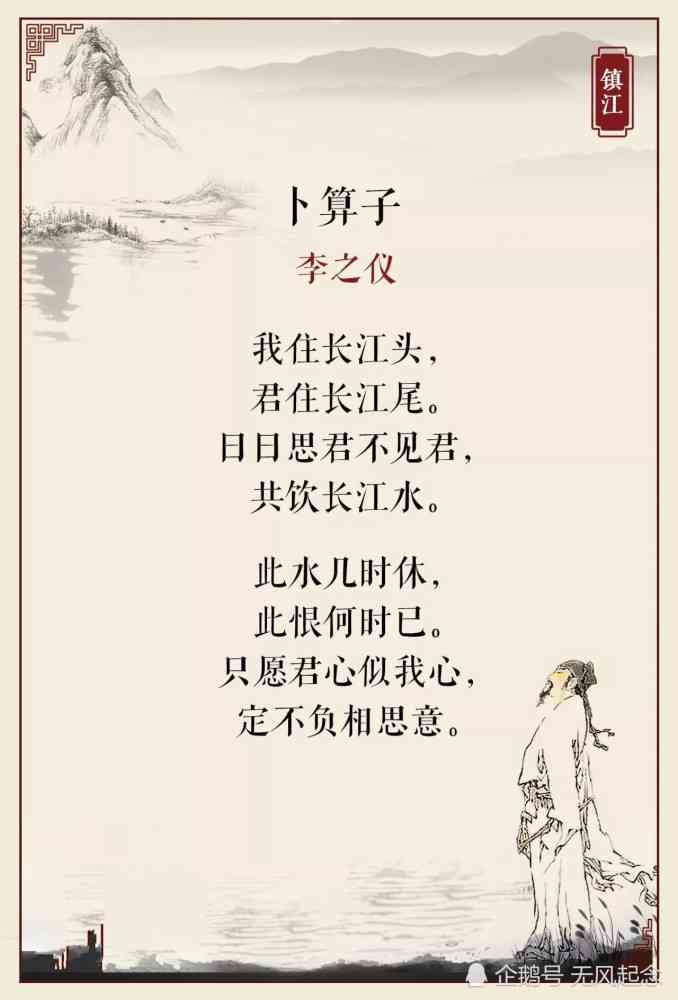 镇江
卜算子
李之仪
我住长江头，
君住长江尾。
日日思君不见君，
共饮长江水。
此水几时休，
此恨何时已。
只愿君心似我心，
定不负相思意。
企鹅号 无风起念